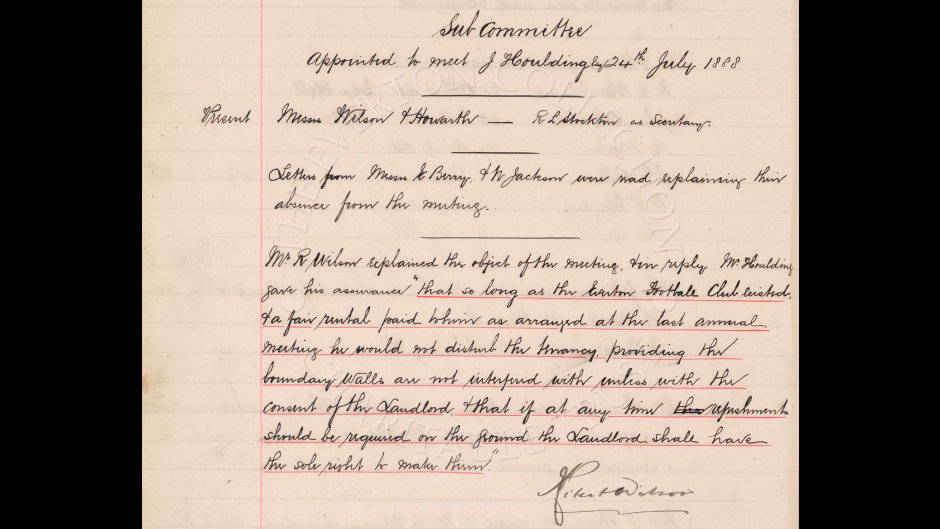 Sub Committee
Appointed to meet J Houlding Esq 24th July 1888
Present Messrs Wilson & Howarth — R L Stockton as Secretary.
Letters from Messrs E Berry, & W Jackson were read explaining their
absence from the meeting.
Mr R Wilson explained the object of the meeting, & in reply Mr Houlding
gave his assurance "that so long as the Everton Football Club existed,
& a fair rental paid to him as arranged at the last annual
meeting he would not disturb the tenancy, providing the
boundary Walls are not interfered with unless with the
consent of the Landlord, & that if at any time the refreshments
should be required on the ground the Landlord shall have
the sole right to make them"
Robert Wilson
THE EVERTON COLLECTION